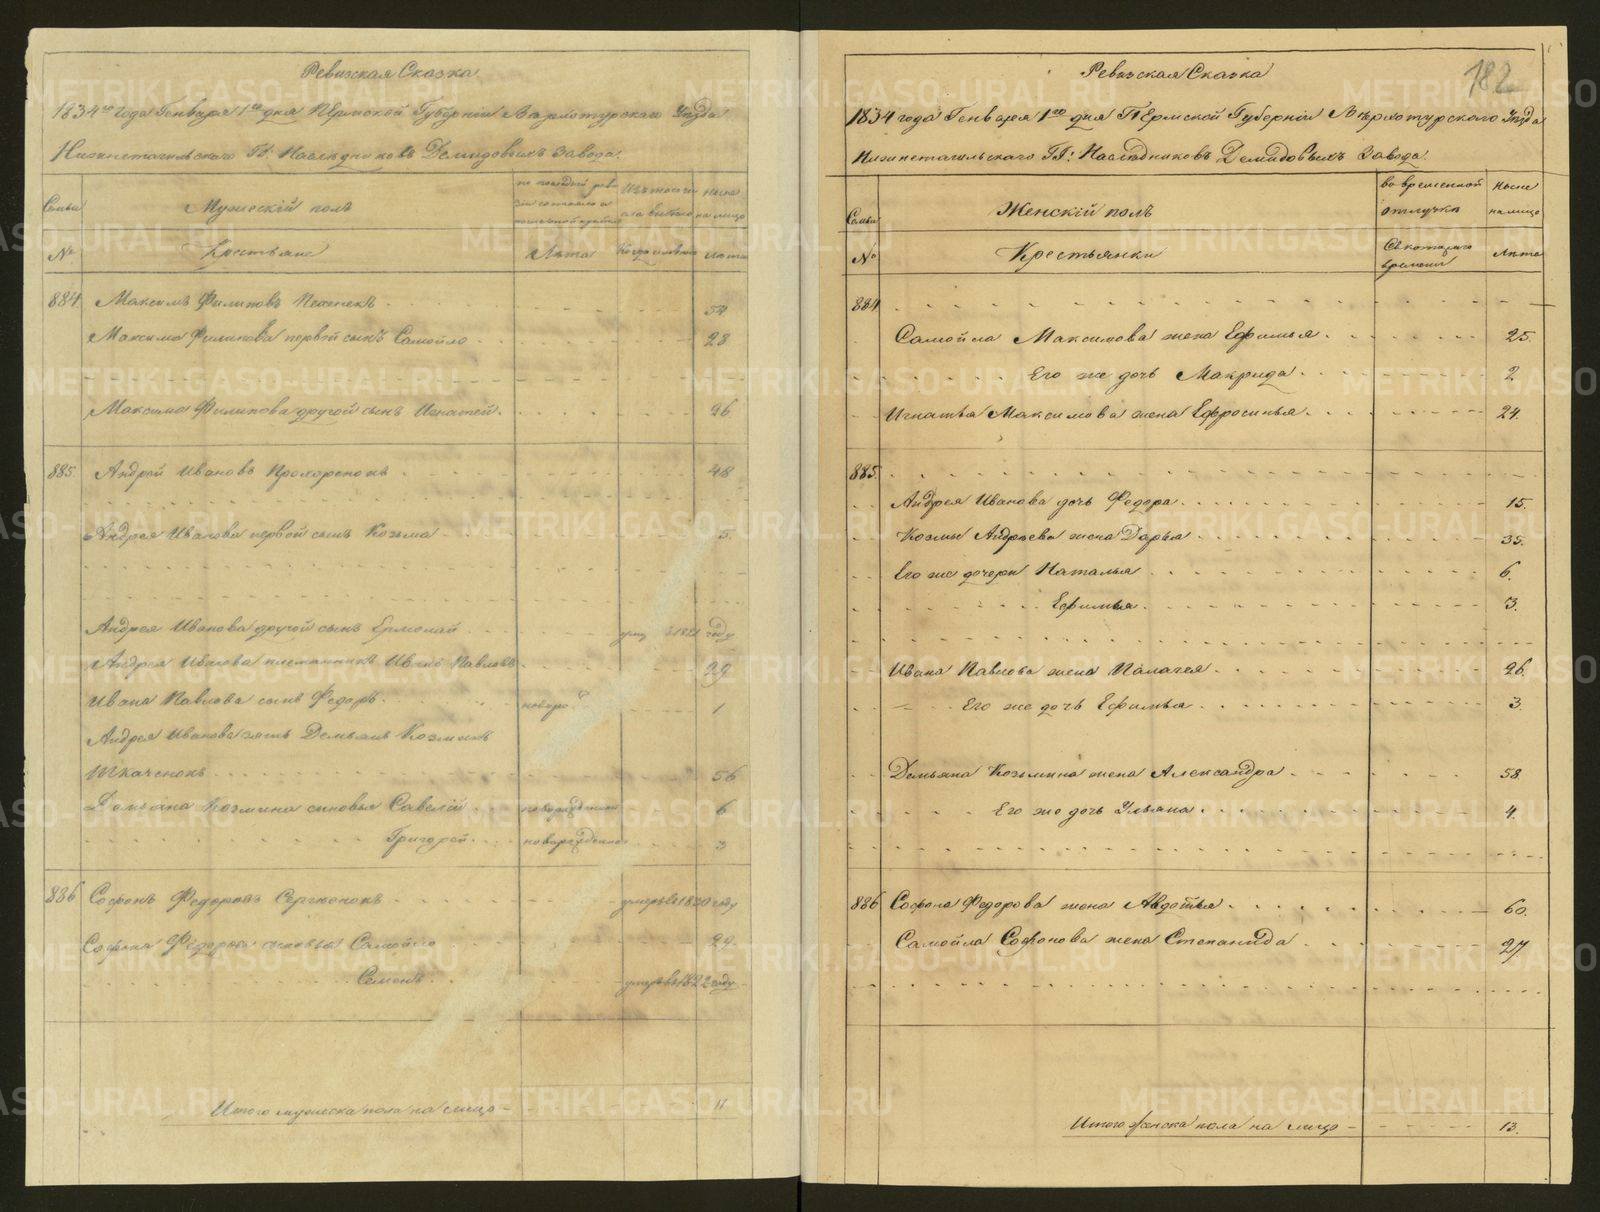 Ревизская Сказка
1834го года Генваря 1го дня Пермской Губернiи Верхотурскаго Уѣзда
Нижнетагильскаго ГГ. Наслѣдниковъ Демидовыхъ Завода.
Семьи
Мужескiй полъ
по последней ревизiи состояло и
Изъ того числа выбыло
Ныне на лицо
№
Крестьяне
Лѣта
Когда именно
Лѣта
884. Максимъ Филиповъ 54
Максима Филипова первой сынъ Самойло 28
Максима Филипова другой сынъ Игнатей 26
885. Андрей Ивановъ Прохоренокъ 48
Андрея Иванова первой сынъ Козьма
Андрея Иванова другой сынъ Ермолай 1821 году
Андрея Иванова племянникъ Иванъ Павловъ 29
Ивана Павлова сынъ Федоръ новоро 1
Андрея Иванова зять Демьянъ Козминъ
Ткаченокъ 56
Демьяна Козмина сыновья Савелiй новорожденной 6
Григорей новорожденной 3
886 Софонъ Федоровъ Сергеенокъ умеръ въ 1820 году
Софона Федорова сыновья Самойло 29.
Семенъ умеръ въ 1822 году
Итого мужеска пола на лицо - 11
182
Ревизская Сказка
1834 года Генваря 1го дня Пермской Губернiи Верхотурскаго Уѣзда
Нижнетагильскаго ГГ: Наслѣдниковъ Демидовыхъ Завода.
Семьи
Женскiй полъ
во временной отлучкѣ
Ныне на лицо
№
Крестьянки
Съ котораго времени
Лѣта
884
Самойла Максимова жена Ефимья 25.
Его же дочь Макрида 2
Игнатья Максимова жена Ефросинья 24.
885.
Андрея Иванова дочь Федора 15.
Козмы Андреева жена Дарья 35.
Его же дочери Наталья 6.
Ефимья 3.
Ивана Павлова жена Палагея 26.
Его же дочь Ефимья 3
Демьяна Козьмина жена Александра 58
Его же дочь Ульяна 4.
886 Софона Федорова жена Авдотья 60.
Самойла Софонова жена Степанида 27
Итого женска пола на лицо - 13.
METRIKI.GASO-URAL.RU